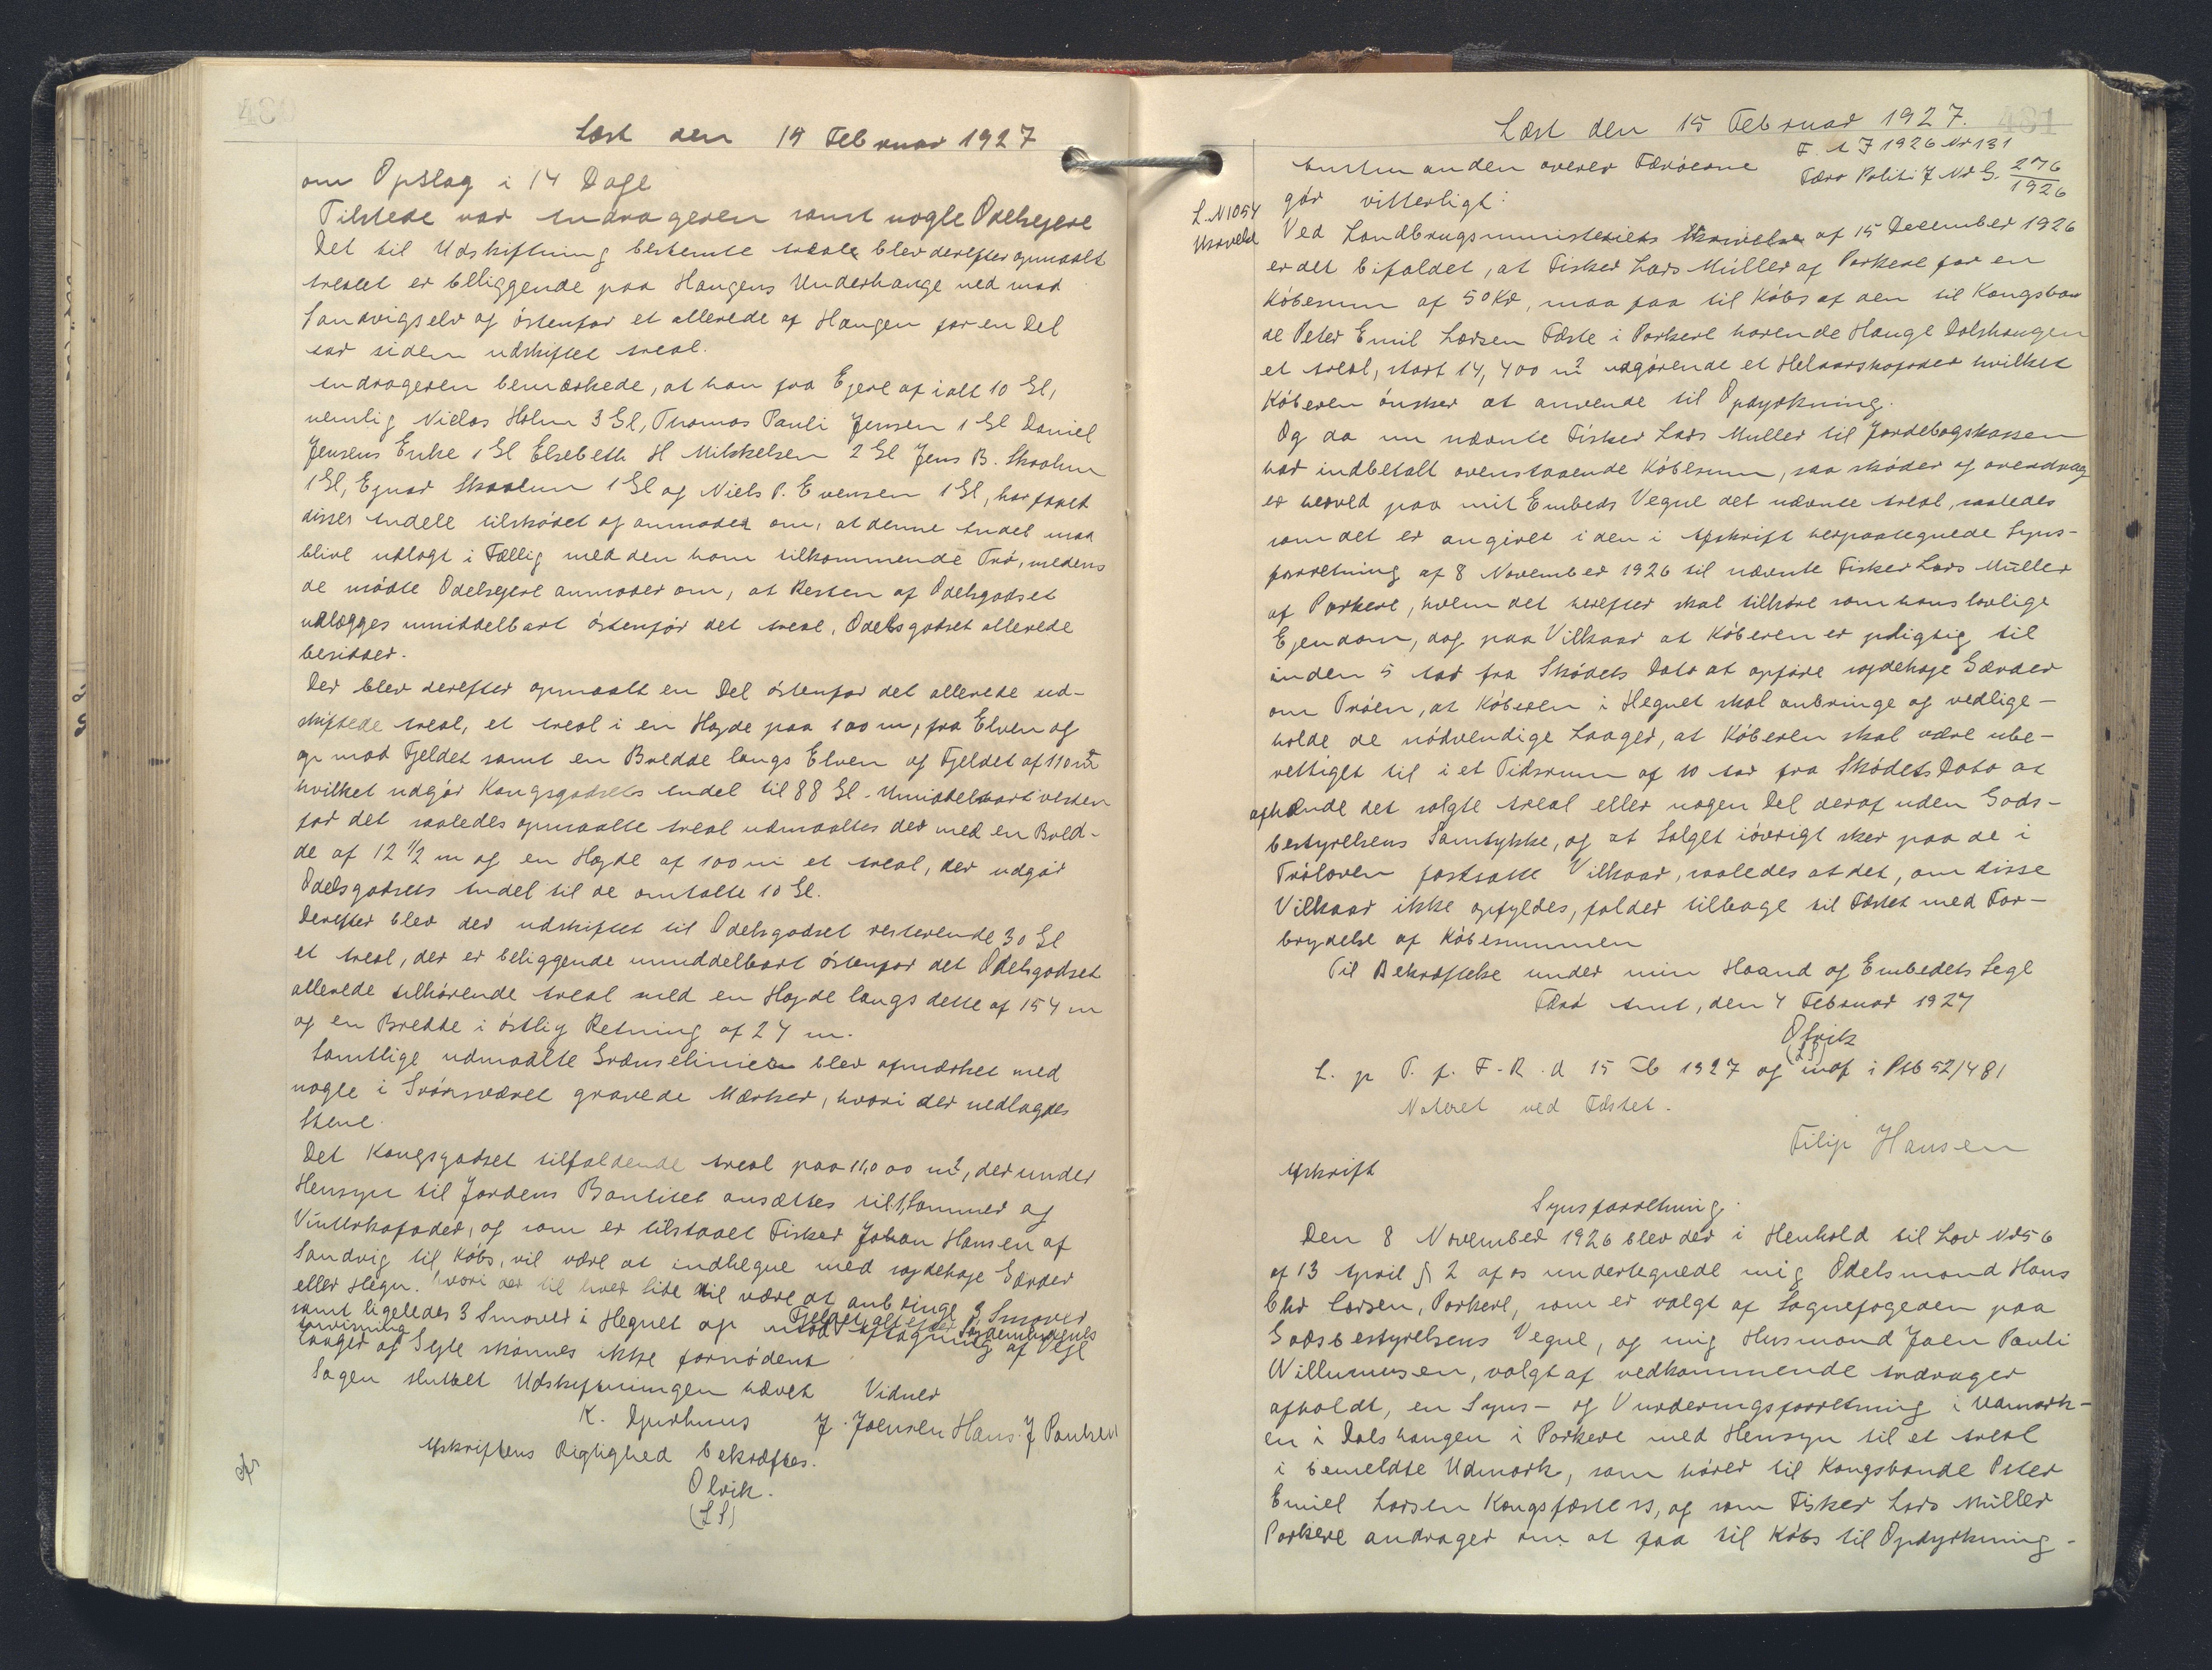 480
Læst den 15 Februar 1927
om Opslag i 14 Dage
Tilstede var Andrageren samt nogle Odelsejere
Det til Udskiftning bestemte Areale blev derefter opmaalt
Arealet er beliggende paa Haugens Underhauge ned mod
Sandvigselv og östenfor et allerede af Haugen for en Del
Aar siden udskiftet Areal.
Andrageren bemærkede, at han fra Ejere af ialt 10 Gl,
nemlig Niclas Holm 3 Gl, Thomas Pauli Jensen 1 Gl Daniel
Jensens Enke 1 Gl Elsebeth H Mikkelsen 2 Gl Jens B. Skaalum
1 Gl, Ejnar Skaalum 1 Gl og Niels P. Evensen 1 Gl, har faaet
disses Andele tilskødet og anmoder om, at denne Andel maa
blive udlagt i Fællig med den ham tilkommende Trø, medens
de mödte Odelsejere anmoder om, at Resten af Odelsgodset
udlægges umiddelbart östenfor det Areal, Odelsgodset allerede
besidder.
Der blev derefter opmaalt en Del östenfor det allerede ud-
skiftede Areal, et Areal i en Højde paa 100 m, fra Elven og
op mod Fjeldet samt en Bredde langs Elven og Fjeldet af 110 m
hvilket udgör Kongsgodsets Andel til 88 Gl. Umiddelbart vesten
for det saaledes opmaalte Areal udmaaltes der med en Bred-
de af 12 1/2 m og en Højde af 100 m et Areal, der udgör
Odelsgodsets Andel til de omtalte 10 Gl.
Derefter blev der udskiftet til Odelsgodset resterende 30 Gl
et Areal, der er beliggende umiddelbart östenfor det Odelsgodset
allerede tilhörende Areal med en Højde langs dette af 154 m
og en Bredde i östlig Retning af 24 m.
Samtlige udmaalte Grænselinier blev afmærket med
nogle i Grönsværet gravede Mærker, hvori der nedlagdes
Stene.
Det Kongsgodset tilfaldende Areal paa 11,000 m², der under
Hensyn til Jordens Bonitet ansættes til 1 Sommer og
Vinterkofoder, og som er tilstaaet Fisker Johan Hansen af
Sandvig til Købs, vil være at indhegne med sædehøje Gærder
eller Hegn. hvori der til hver Side vil være at anbringe 3 Smover
samt ligeledes 3 Smover i Hegnet op mod Fjeldet alt efter Sandemændenes
Anvisning Optagning af Veje
Laager og Syle skönnes ikke fornödent
Sagen sluttet Udskiftningen hævet Vidner
K. Djurhuus J. Joensen Hans. J Poulsen
Afskriftens Rigtighed bekræftes.
Olrik.
(L S)
481
Læst den 15 Februar 1927.
F. A J 1926 Nr 131
Færø Politi J Nr G. 276/1926
Amtmanden over Færöerne
gör vitterligt:
L. N 1054
Ved Landbrugsministeriets Skrivelse af 15 December 1926
er det bifaldet, at Fisker Lars Müller af Porkere for en
Köbesum af 50 Kr, maa faa til Købs af den til Kongsbon
de Peter Emil Larsen Fæste i Porkere hørende Hauge Dalshaugen
et Areal, stort 14,400 m² udgørende et Helaarskofoder hvilket
Köberen önsker at anvende til Opdyrkning.
Og da nu nævnte Fisker Lars Müller til Jordebogskassen
har indbetalt ovenstaaende Köbesum, saa sköder og overdrag
er herved paa mit Embeds Vegne det nævnte Areal, saaledes
som det er angivet i den i Afskrift herpaategnede Syns-
forretning af 8 November 1926 til nævnte Fisker Lars Müller
af Porkere, hvem det herefter skal tilhöre som hans lovlige
Ejendom, dog paa Vilkaar at Köberen er pligtig til
inden 5 Aar fra Skødets Dato at opføre sædehøje Gærder
om Tröen, at Köberen i Hegnet skal anbringe og vedlige-
holde de nödvendige Laager, at Köberen skal være ube-
rettiget til i et Tidsrum af 10 Aar fra Skødets Dato at
afhænde det solgte Areal eller nogen Del deraf uden Gods-
bestyrelsens Samtykke, og at Salget iövrigt sker paa de i
Tröloven fastsatte Vilkaar, saaledes at det, om disse
Vilkaar ikke opfyldes, falder tilbage til Fæstet med For-
brydelse af Köbesummen
Til Bekræftelse under min Haand og Embedets Segl
Færö Amt, den 4 Februar 1927
Olrik
(L S)
L. p T. f. F-R. d 15 Feb 1927 og indf i Ptb 52/481
Noteret ved Fæstet.
Filip Hansen
Afskrift
Synsforretning.
Den 8 November 1926 blev der i Henhold til Lov Nr 56
af 13 April § 2 af os undertegnede mig Odelsmand Hans
Chr Larsen, Porkere, som er valgt af Sognefogeden paa
Godsbestyrelsens Vegne, og mig Husmand Joen Pauli
Willumsen, valgt af vedkommende Andrager
afholdt, en Syns- og Vurderingsforretning i Udmark-
en i Dalshaugen i Porkere med Hensyn til et Areal
i bemeldte Udmark, som hörer til Kongsbonde Peter
Emiel Larsen Kongsfæste 13, og som Fisker Lars Müller
Porkere andrager om at faa til Købs til Opdyrkning-